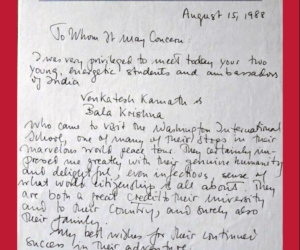 August 15, 1988
To Whom It May Concern:
I was very privileged to meet today your two
young, energetic students and ambassadors
of India
Venkatesh Kamath &
Bala Krishna
who came to visit the Washington International
School, one of many of their stops in their
marvelous world peace tour. They certainly im-
pressed me greatly with their genuine humanity
and delightful, even infectious, sense of
what world citizenship is all about. They
are both a great credit to their university
and to their country, and surely also
their family.
My best wishes for their continued
success in their adventure.